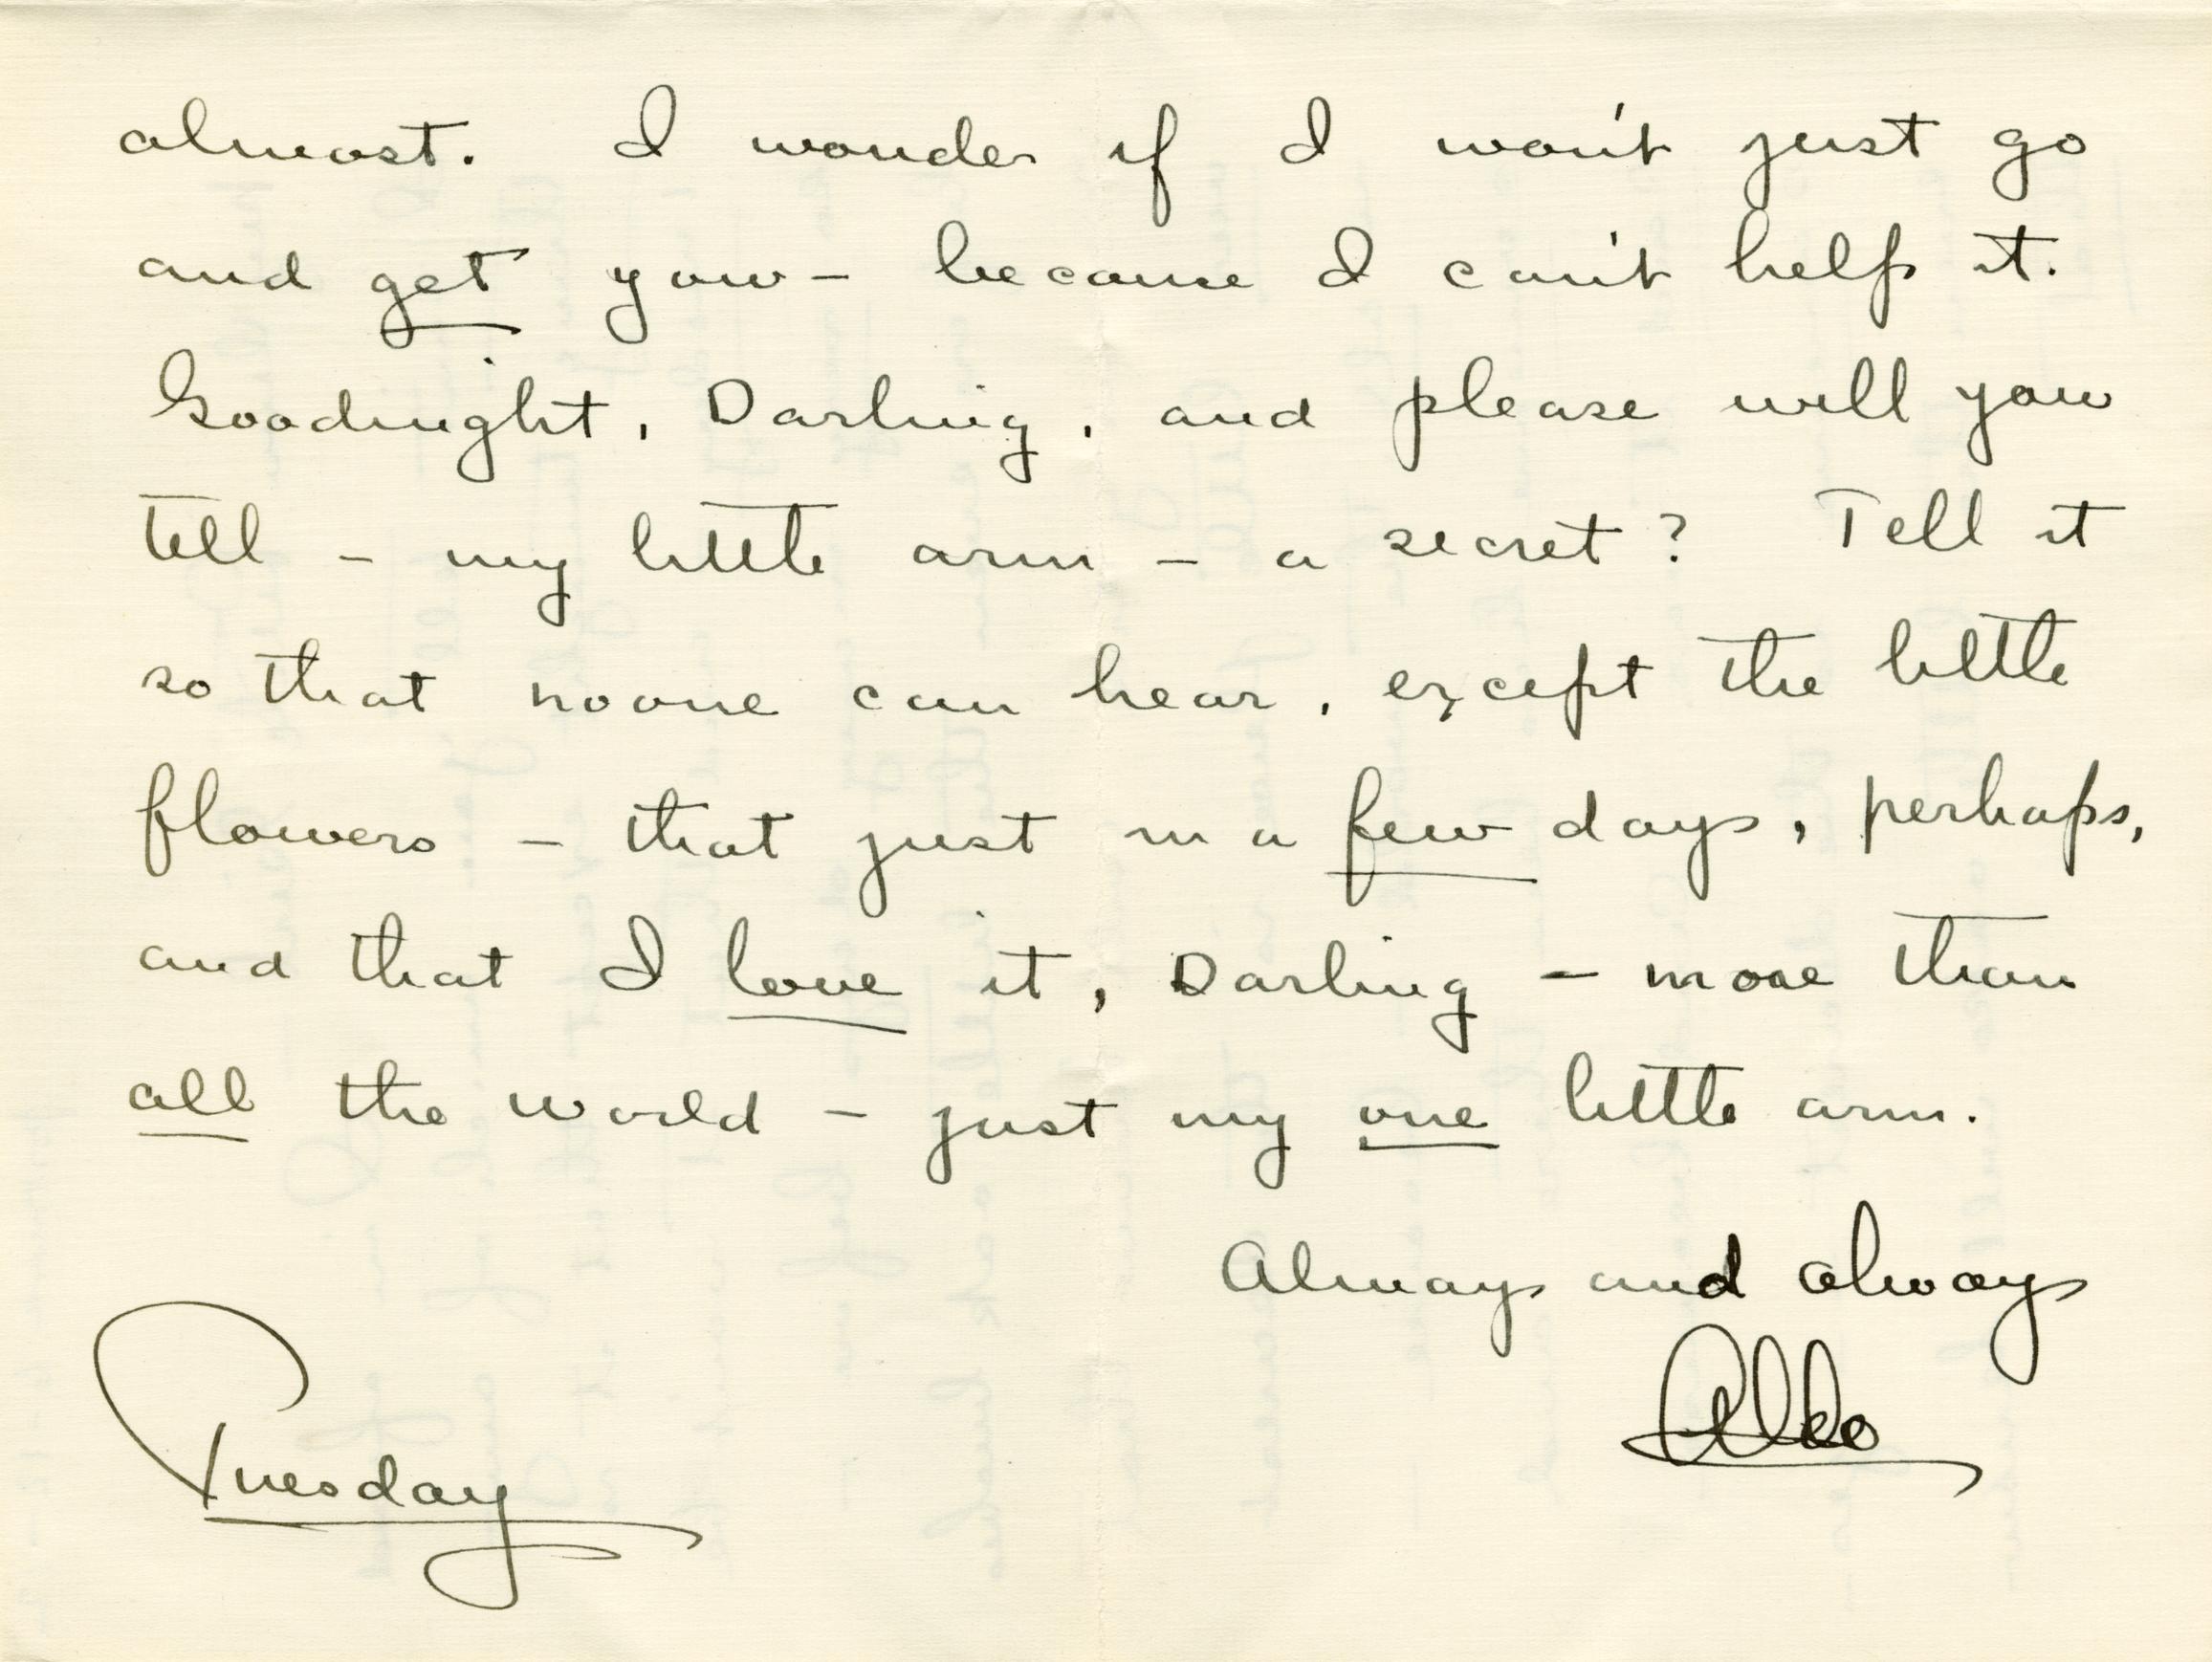 almost. I wonder if I won't just go
and get you - because I can't help it.
Goodnight, Darling, and please will you
tell - my little arm - a secret? Tell it
so that noone can hear, except the little
flowers - that just in a few days, perhaps,
and that I love it, Darling - more than
all the world - just my one little arm.
Always and always
Aldo
Tuesday